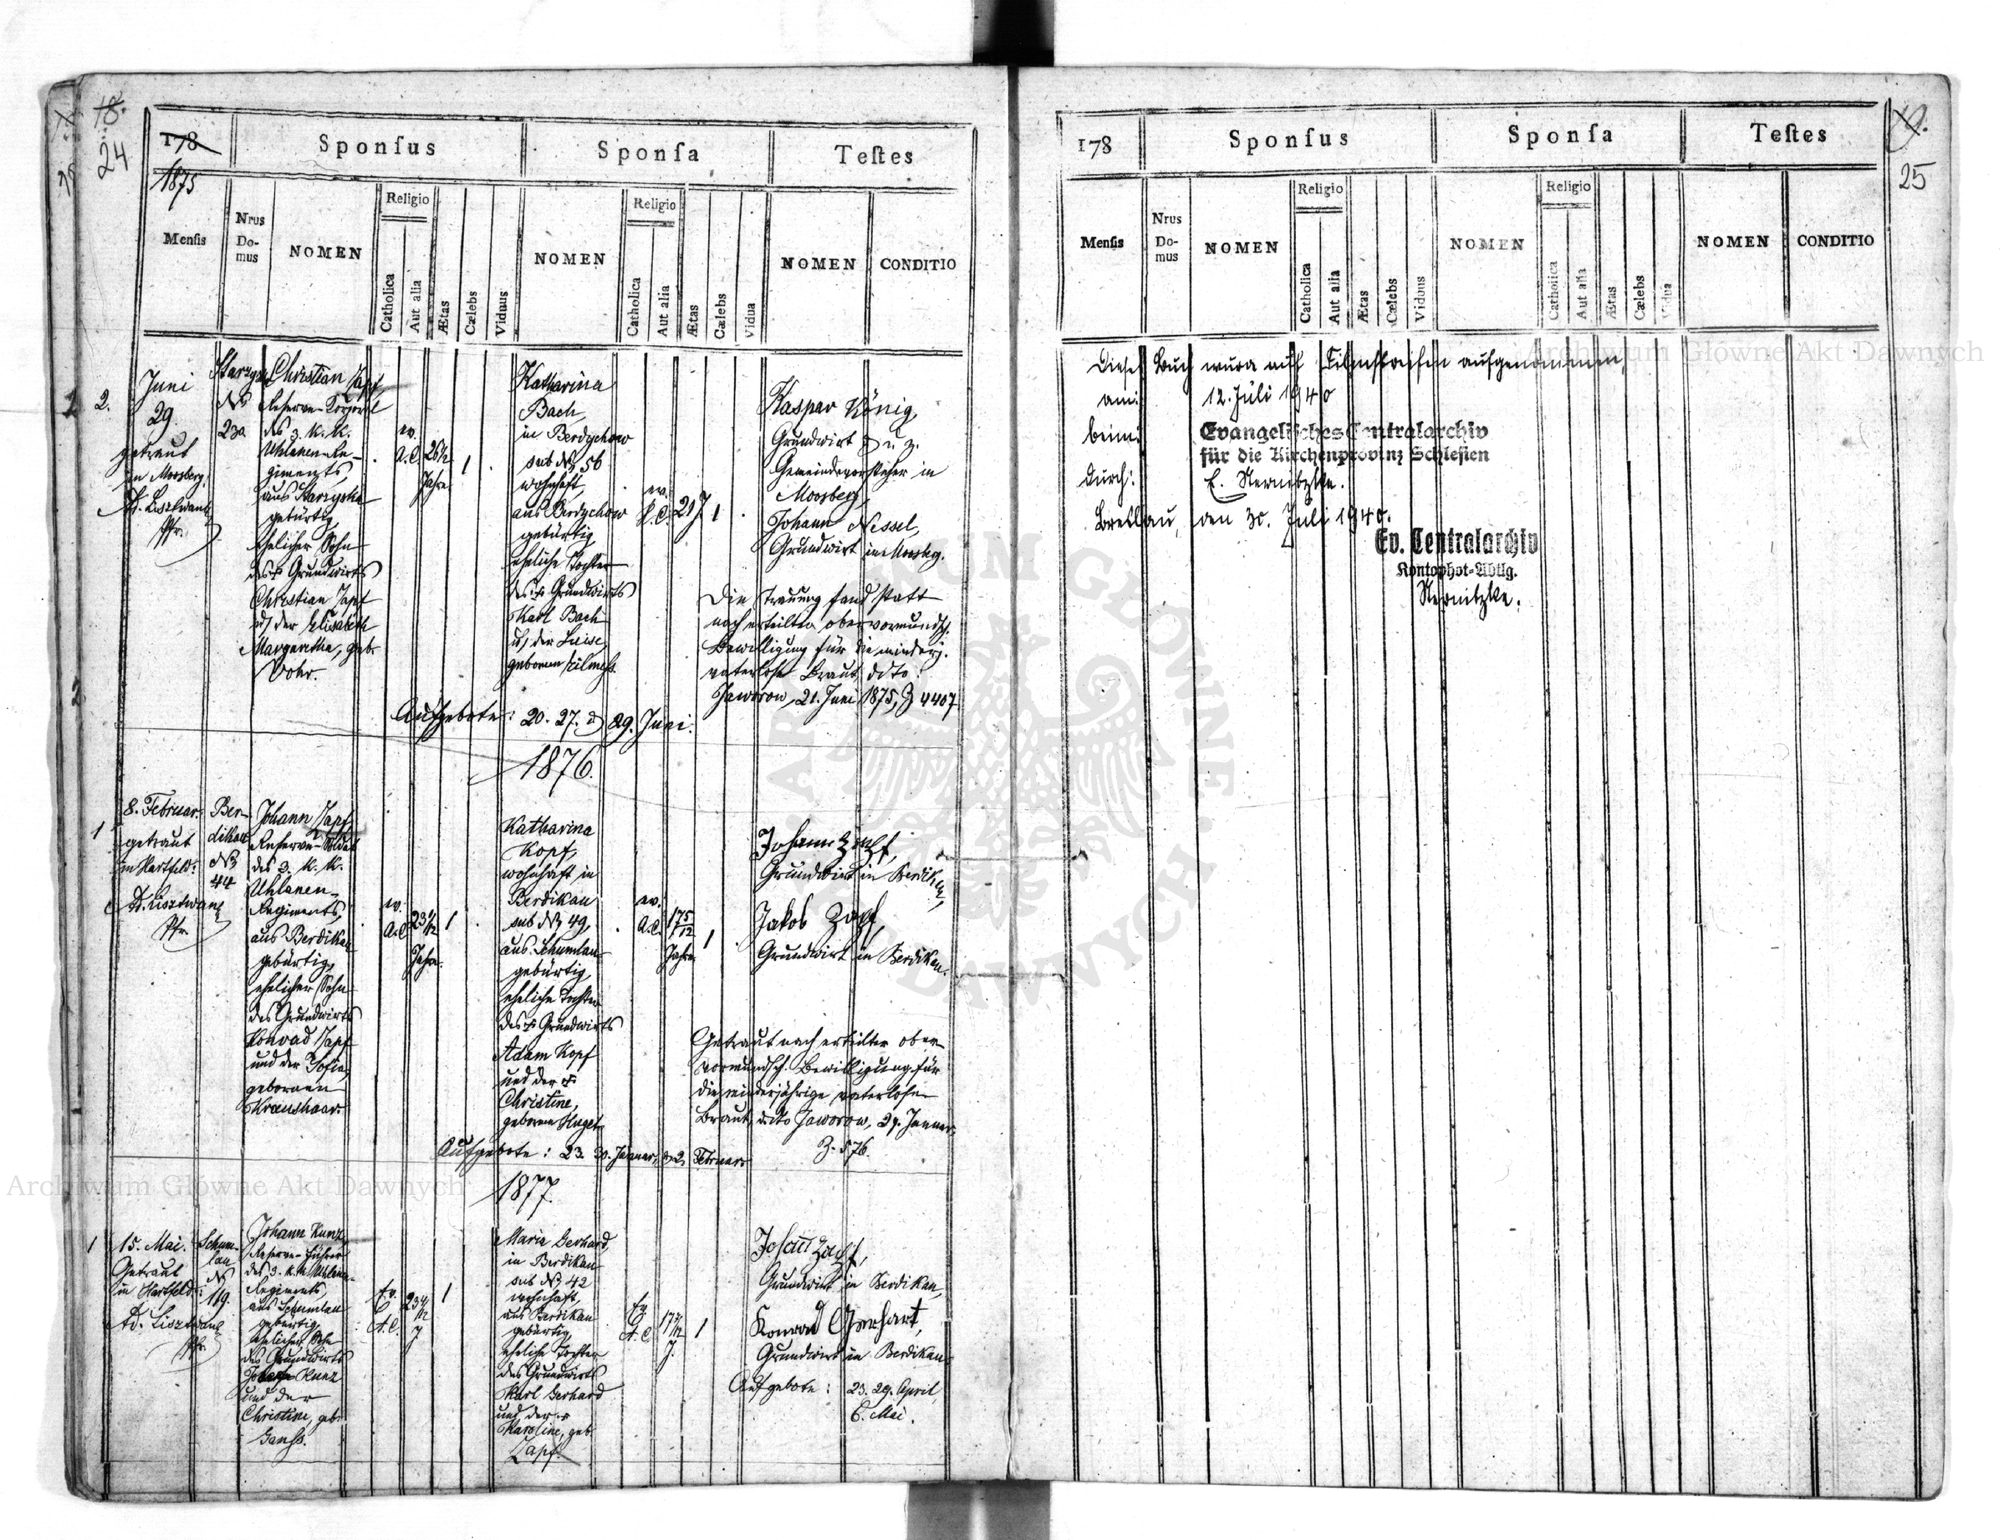 18.
24
178
1875
Sponsus
Sponsa
Testes
Mensis
Nrus Domus
NOMEN
Religio
Catholica
Aut alia
Ætas
Cælebs
Viduus
NOMEN
Religio
Catholica
Aut alia
Ætas
Cælebs
Vidua
NOMEN
CONDITIO
2.
Juni
29.
getraut
in Moosberg,
Pfr.
№
23a
Christian Zapf
Reserve-Korporal
des 3. K. K.
Uhlanen-Re-
giments,
aus Starzyska
gebürtig,
ehelicher Sohn
des † Grundwirts
Christian Zapf
u/ der Elisabeth
Margaretha, geb.
ev.
A.C.
Jahre
1
Katharina
Bach,
in Berdychow
sub № 56
wohnhaft,
aus Berdychow
gebürtig,
eheliche Tochter
des † Grundwirts
Karl Bach
u/ der Luise,
ev.
21 J
1
Kaspar König,
Grundwirt
Gemeindevorsteher in
Moosberg,
Johann Nessel,
Grundwirt in Moosbg.
Die Trauung fand statt
nach erteilter obervormundsch.
Bewilligung für die minderj.
vaterlose Braut, ddto
Jaworow, 21. Juni 1875, Z 4407
Aufgebote: 20. 27. & 29. Juni.
1876.
1
8. Februar.
getraut
in Hartfeld:
Pfr.
Ber-
dikau
№
44
Johann Zapf
Reserve-Soldat
des 3. K. K.
Uhlanen-
Regiments,
aus Berdikau
gebürtig,
ehelicher Sohn
des Grundwirts
Konrad Zapf
und der Sofia,
gebornen
Kraushaar
ev.
A.C.
Jahre.
1
Katharina
Kopf,
wohnhaft in
Berdikau
sub № 49,
aus Schumlau
gebürtig,
eheliche Tochter
des † Grundwirts
Adam Kopf
und der †
Christine,
ev.
A.C.
17 5/12
Jahre
1
Johann Zapf,
Grundwirt in Berdikau,
Jakob Zapf,
Grundwirt in Berdikau.
Getraut nach erteilter ober-
vormundsch. Bewilligung für
die minderjährige vaterlose
Braut, ddto Jaworow, 27. Jänner,
Z. 576.
Aufgebote: 23. 30. Jänner, & 2. Februar
1877.
1
15. Mai.
Getraut
in Hartfeld:
Pfr.
Schum-
lau
№
119.
Johann Kunz
des 3. K. K. Uhlanen-
Regiments,
aus Schumlau
gebürtig,
ehelicher Sohn
des Grundwirts
Kunz
und der
Christine, geb.
Ev.
A.C.
J
1
Maria Gerhard,
in Berdikau
sub № 42
wohnhaft,
aus Berdikau
gebürtig,
eheliche Tochter
des Grundwirts
Karl Gerhard
und der
Karoline, geb.
Zapf.
Ev
A.C.
J.
1
Johann Zapf,
Grundwirt in Berdikau,
Konrad Gerhart,
Grundwirt in Berdikau.
Aufgebote: 23. 29. April,
6. Mai.
25
178
Sponsus
Sponsa
Testes
Mensis
Nrus Domus
NOMEN
Religio
Catholica
Aut alia
Ætas
Cælebs
Viduus
NOMEN
Religio
Catholica
Aut alia
Ætas
Cælebs
Vidua
NOMEN
CONDITIO
Dieses Buch wurde auf Filmstreifen aufgenommen,
am: 12. Juli 1940
beim: Evangelisches Centralarchiv
für die Kirchenprovinz Schlesien
durch:
Breslau, den 30. Juli 1940.
Ev. Centralarchiv
Kontophot-Abtlg.
Archiwum Główne Akt Dawnych
Archiwum Główne Akt Dawnych
ARCHIWUM GŁÓWNE AKT DAWNYCH